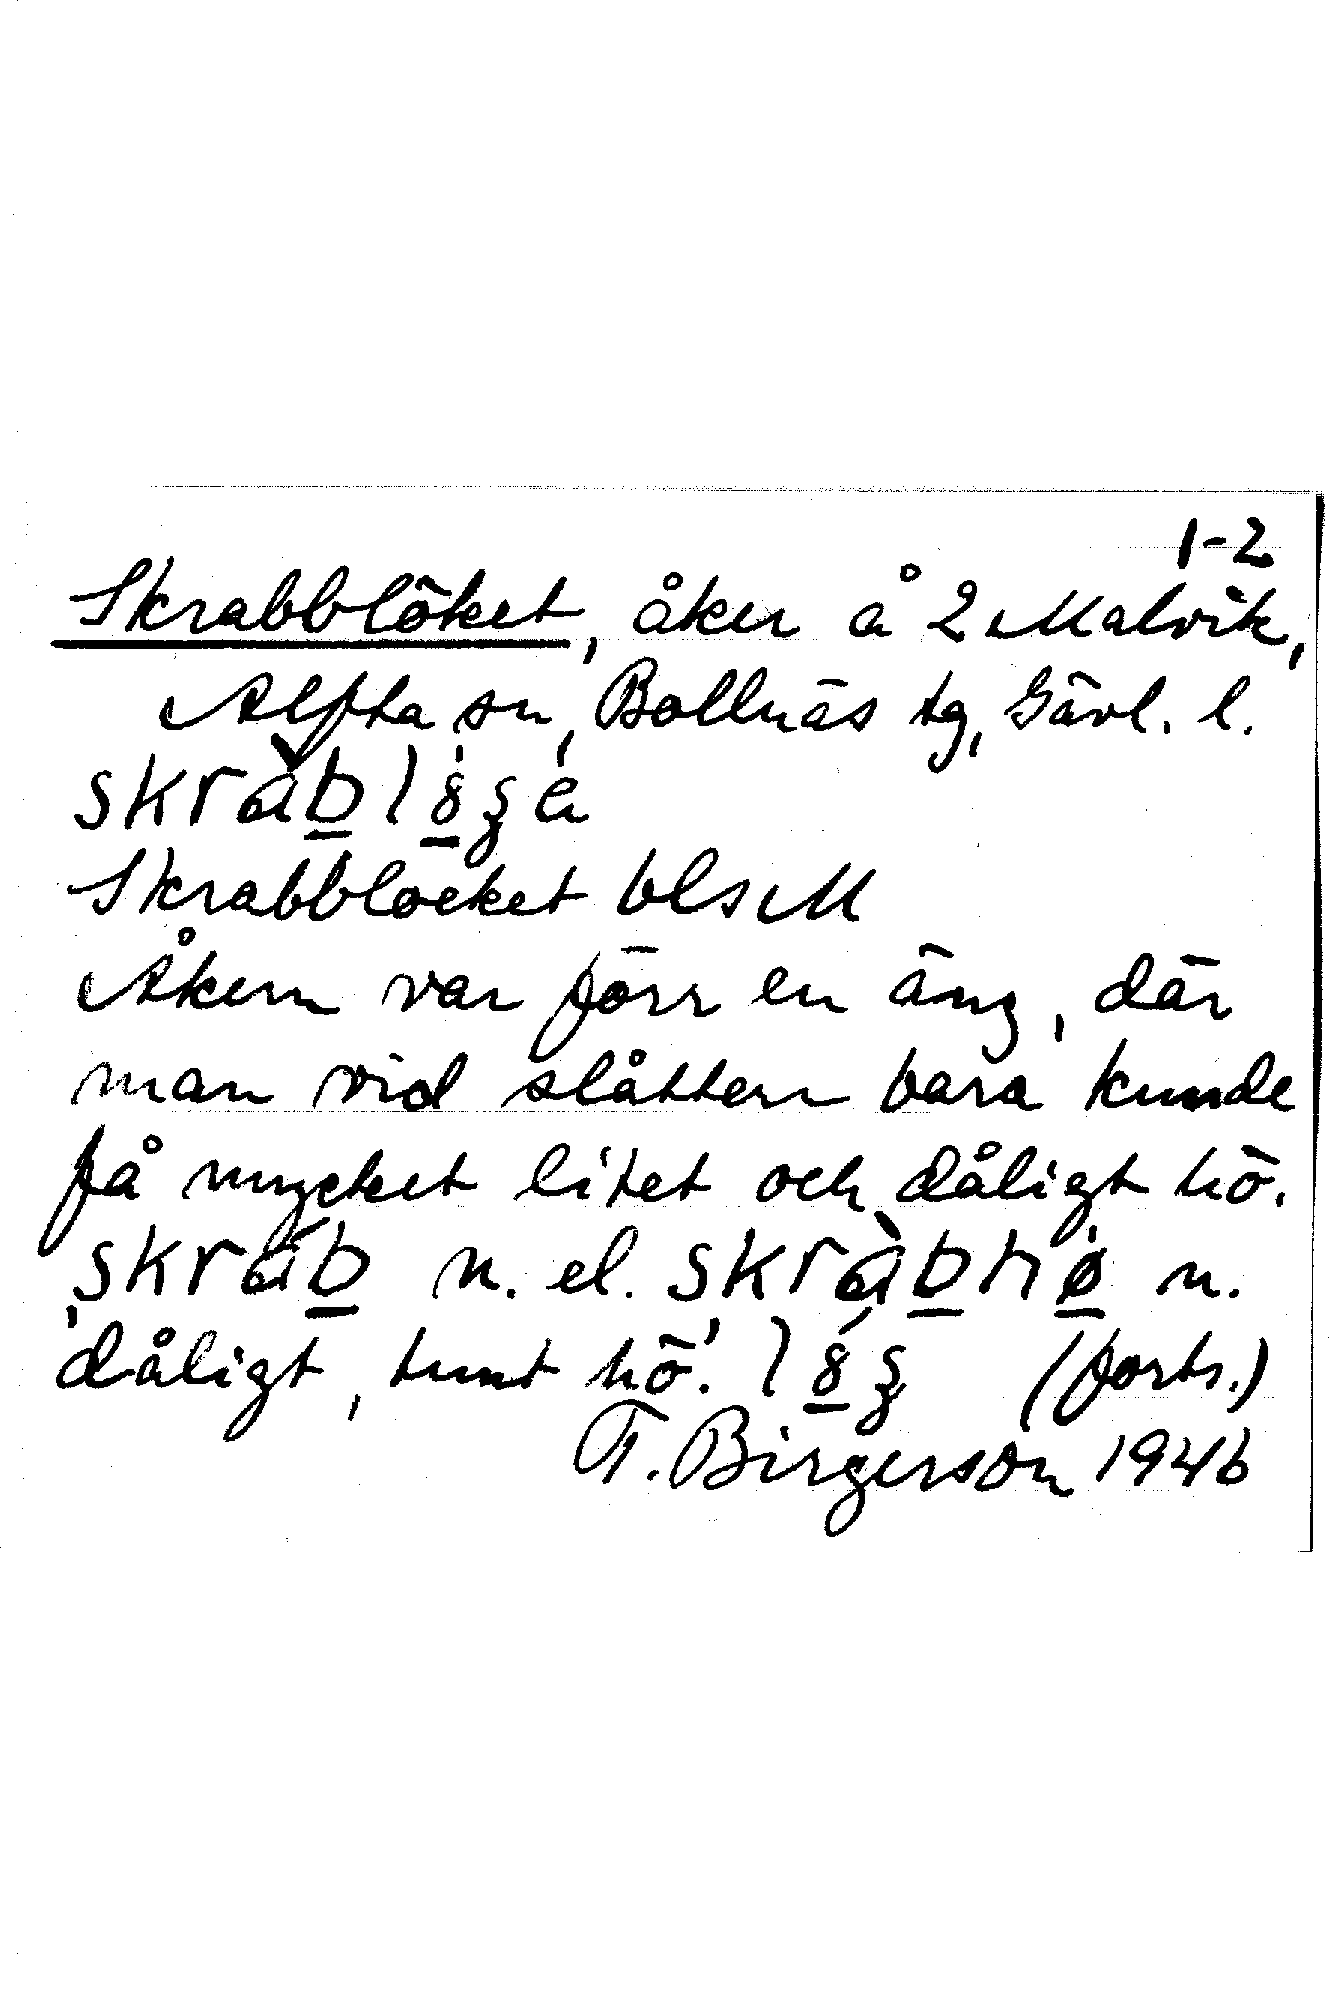 1-2
Skrabblöket, åker å 2 Malvik,
Alfta sn, Bollnäs tg, Gävl. l.
Skrabblocket blsM
Åkern var förr en äng, där
man vid slåttern bara kunde
få mycket litet och dåligt hö.
skràb n. el. skràbhø n.
'dåligt, tunt hö'. (forts.)
T. Birgerson 1946